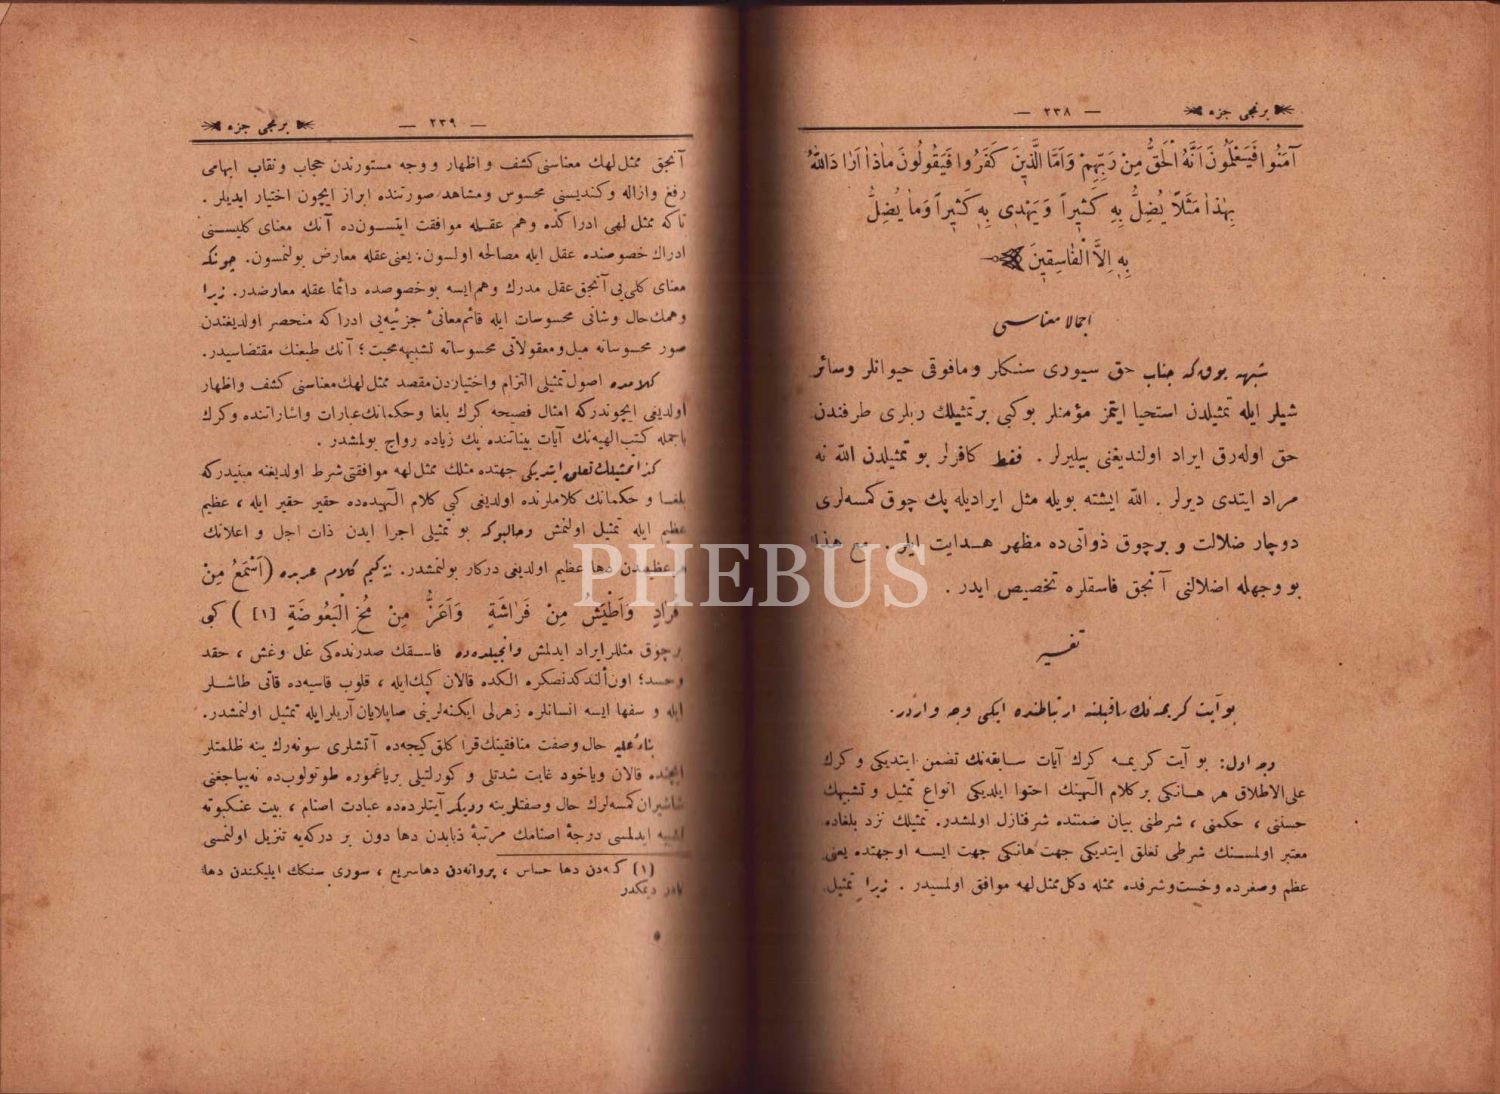 برنجی جزء
— ٢٣٨ —
آمَنُوا فَيَعْلَمُونَ أَنَّهُ الْحَقُّ مِنْ رَبِّهِمْ وَاَمَّا الَّذِينَ كَفَرُوا فَيَقُولُونَ مَاذَا اَرَادَ اللهُ
بِهٰذَا مَثَلًا يُضِلُّ بِهِ كَثِيراً وَيَهْدِى بِهِ كَثِيراً وَمَا يُضِلُّ
بِهِ اِلَّا الْفَاسِقِينَ
اجمالا معناسی
شبهه یوق که جناب حق سیوری سنکلر ومافوقی حیوانلر وسائر
شیلر ایله تمثیلدن استحیا ایتمز مؤمنلر بوکبی برتمثیلك ربلری طرفندن
حق اوله‌رق ایراد اولندیغنی بیلیرلر . فقط کافرلر بو تمثیلدن الله نه
مراد ایتدی دیرلر . الله ایشته بویله مثل ایرادیله پك چوق کمسه‌لری
دوچار ضلالت و برچوق ذواتی‌ده مظهر هدایت ایلر . مع هذا
بو وجهله اضلالنی آنجق فاسقلره تخصیص ایدر .
تفسیر
بو آیت کریمه‌نك ماقبلنه ارتباطنده ایکی وجه واردر.
وجه اول: بو آیت کریمه کرك آیات سابقه‌نك تضمن ایتدیکی و کرك
علی‌الاطلاق هر هانکی برکلام الٓهینك احتوا ایلدیکی انواع تمثیل و تشبیهك
حسننی ، حکمنی ، شرطنی بیان ضمننده شرفنازل اولمشدر. تمثیلك نزد بلغاده
معتبر اولمسنك شرطی تعلق ایتدیکی جهت هانکی جهت ایسه اوجهتده یعنی
عظم وصغرده وخست‌وشرفده ممثله دکل ممثل لهه موافق اولمسیدر . زیرا تمثیل
برنجی جزء
— ٢٣٩ —
آنجق ممثل لهك معناسنی کشف و اظهار و وجه مستورندن حجاب ونقاب ابهامی
رفع وازاله وکندیسنی محسوس ومشاهد صورتنده ابراز ایچون اختیار ایدیلر .
تاکه ممثل لهی ادراکده وهم عقله موافقت ایتسون‌ده آنك معنای کلیسنی
ادراك خصوصنده عقل ایله مصالحه اولسون؛ یعنی عقله معارض بولنمسون. چونکه
معنای کلی‌یی آنجق عقل مدرك وهم ایسه بوخصوصده دائما عقله معارضدر. زیرا
وهمك حال وشانی محسوسات ایله قائم معانئ جزئیه‌یی ادراکه منحصر اولدیغندن
صور محسوسانه میل ومعقولاتی محسوسانه تشبیهه محبت ؛ آنك طبعنك مقتضاسیدر.
کلامده اصول تمثیلی التزام واختیاردن مقصد ممثل لهك معناسنی کشف واظهار
اولدیغی ایچوندرکه امثال فصیحه کرك بلغا وحکمانك عبارات واشاراتنده وکرك
باجمله کتب الهیه‌نك آیات بیناتنده پك زیاده رواج بولمشدر .
کذا تمثیلك تعلق ایتدیکی جهتده مثلك ممثل لهه موافقتی شرط اولدیغنه مبنیدرکه
بلغا و حکمانك کلاملرنده اولدیغی کبی کلام الٓهیده‌ده حقیر حقیر ایله ، عظیم
عظیم ایله تمثیل اولنمش وحالبوکه بو تمثیلی اجرا ایدن ذات اجل و اعلانك
هر عظیمدن دها عظیم اولدیغی درکار بولنمشدر. نته‌کیم کلام عربده (اَسْمَعُ مِنْ
قُرَادٍ وَاَطْيَشُ مِنْ فَرَاشَةٍ وَاَعَزُّ مِنْ مُخِّ الْبَعُوضَةِ [١] ) کبی
برچوق مثللر ایراد ایدلمش وانجیلده‌ده فاسقك صدرنده‌کی غل وغش ، حقد
وحسد؛ اون‌ألندکدنصکره الکده قالان کپك ایله ، قلوب قاسیه‌ده قاتی طاشلر
ایله و سفها ایسه انسانلره زهرلی ایکنه‌لرینی صاپلایان آریلرایله تمثیل اولنمشدر.
بناءً علیه حال وصفت منافقینك قراکلق کیجه‌ده آتشلری سونه‌رك ینه ظلمتلر
ایچنده قالان ویاخود غایت شدتلی و کورلتیلی بریاغموره طوتولوب‌ده نه‌یپاجغنی
شاشیران کمسه‌لرك حال وصفتلرینه ودیکر آیتلرده‌ده عبادت اصنام ، بیت عنکبوته
تشبیه ایدلمسی درجهٔ اصنامك مرتبهٔ ذبابدن دها دون بر درکه‌یه تنزیل اولنمسی
[١] کنه‌دن دها حساس ، پروانه‌دن دهاسریع ، سوری سنکك ایلیکندن دها
نادر دیمکدر
PHEBUS